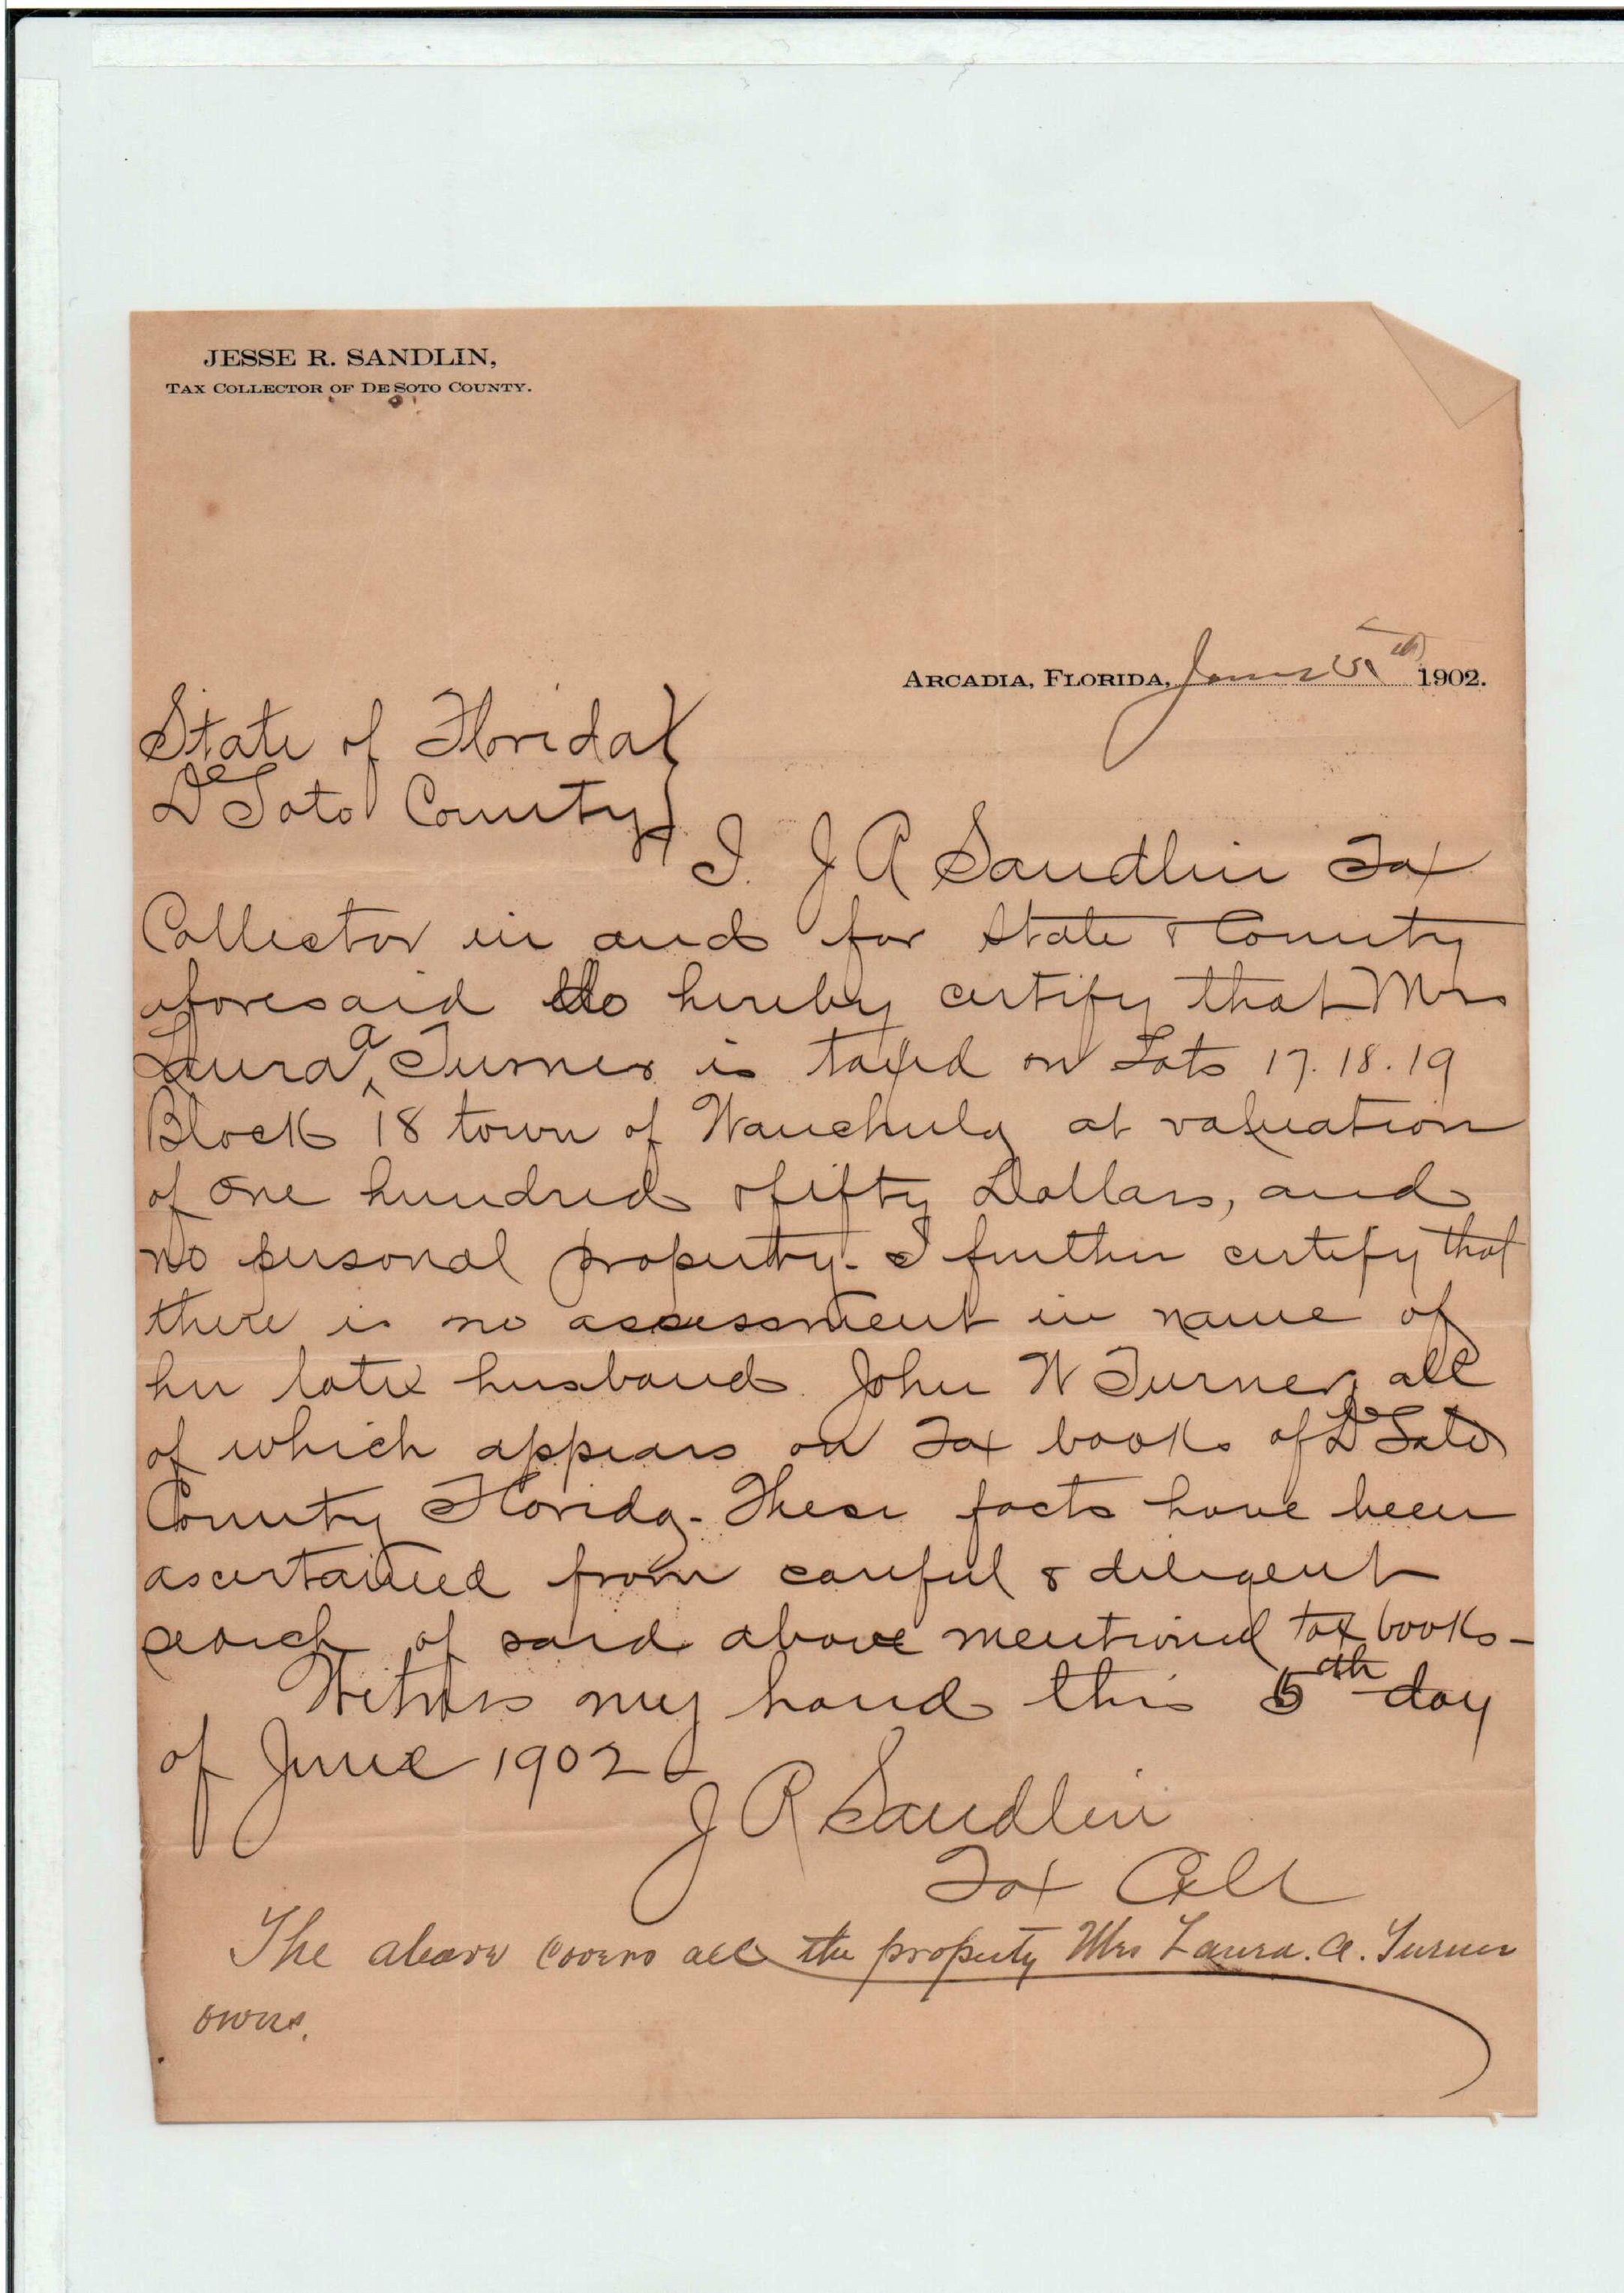 JESSE R. SANDLIN,
TAX COLLECTOR OF DE SOTO COUNTY.
ARCADIA, FLORIDA, June 5th 1902.
State of Florida }
De Soto County }
I. J R Sandlin Tax
Collector in and for State & County
aforesaid do hereby certify that Mrs
Laura a Turner is taxed on Lots 17. 18. 19
Block 18 town of Wauchula at valuation
of one hundred & fifty Dollars, and
no personal property- I further certify that
there is no assessment in name of
her late husband John W Turner, all
of which appears on Tax books of De Soto
County Florida- These facts have been
ascertained from careful & diligent
search of said above mentioned tax books-
Witness my hand this 5th day
of June 1902
J R Sandlin
Tax Coll
The above covers all the property Mrs Laura. A. Turner
owns.